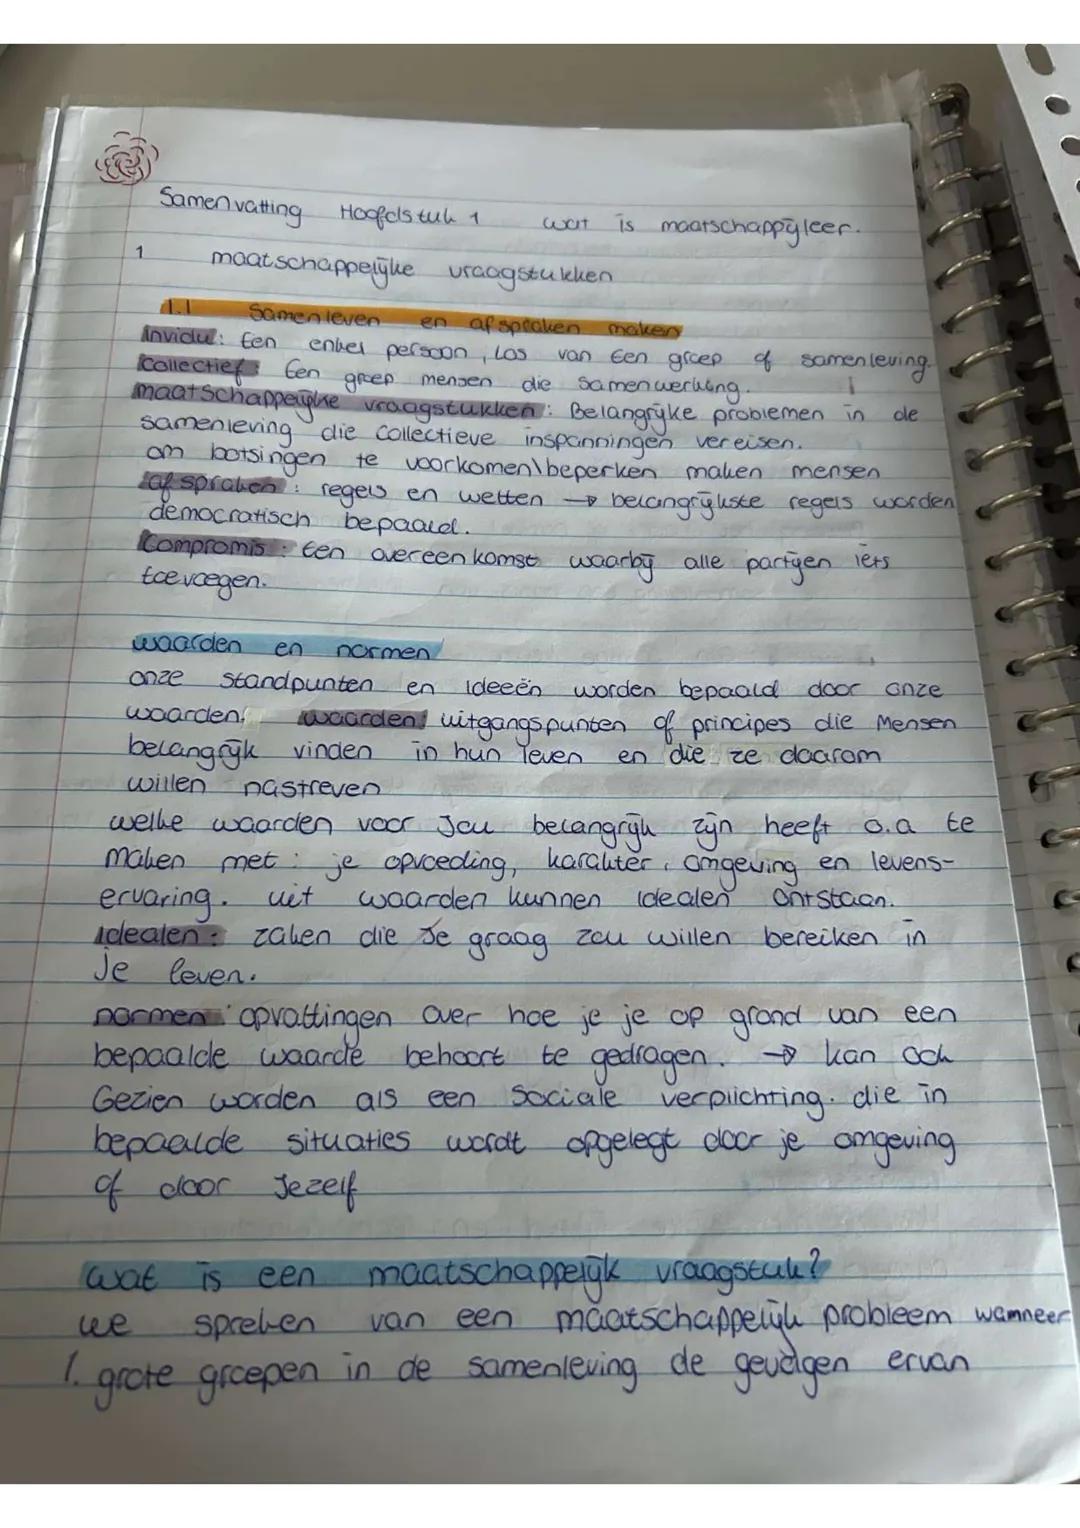 Samenvatting Hoofdstuk 1 wat is maatschappijleer.
1 maatschappelijke vraagstukken
1.1 Samenleven en afspraken maken
Invidu: Een enkel persoon, los van Een groep of samenleving.
Collectief: Een groep mensen die samenwerking.
maatschappelijke vraagstukken: Belangrijke problemen in de
samenleving die collectieve inspanningen vereisen.
om botsingen te voorkomen\beperken maken mensen
afspraken: regels en wetten → belangrijkste regels worden
democratisch bepaald.
Compromis: Een overeenkomst waarbij alle partijen iets
toevoegen.
waarden en normen
onze standpunten en ideeën worden bepaald door onze
waarden. waarden: uitgangspunten of principes die Mensen
belangrijk vinden in hun leven en die ze daarom
willen nastreven
welke waarden voor Jou belangrijk zijn heeft o.a te
maken met: je opvoeding, karakter, omgeving en levens-
ervaring. uit waarden kunnen idealen ontstaan.
Idealen: zaken die Je graag zou willen bereiken in
Je leven.
normen: opvattingen over hoe je je op grond van een
bepaalde waarde behoort te gedragen. → kan ook
Gezien worden als een Sociale verplichting. die in
bepaalde situaties wordt opgelegt door je omgeving
of door Jezelf
wat is een maatschappelijk vraagstuk?
we spreken van een maatschappelijk probleem wanneer
1. grote groepen in de samenleving de gevolgen ervan